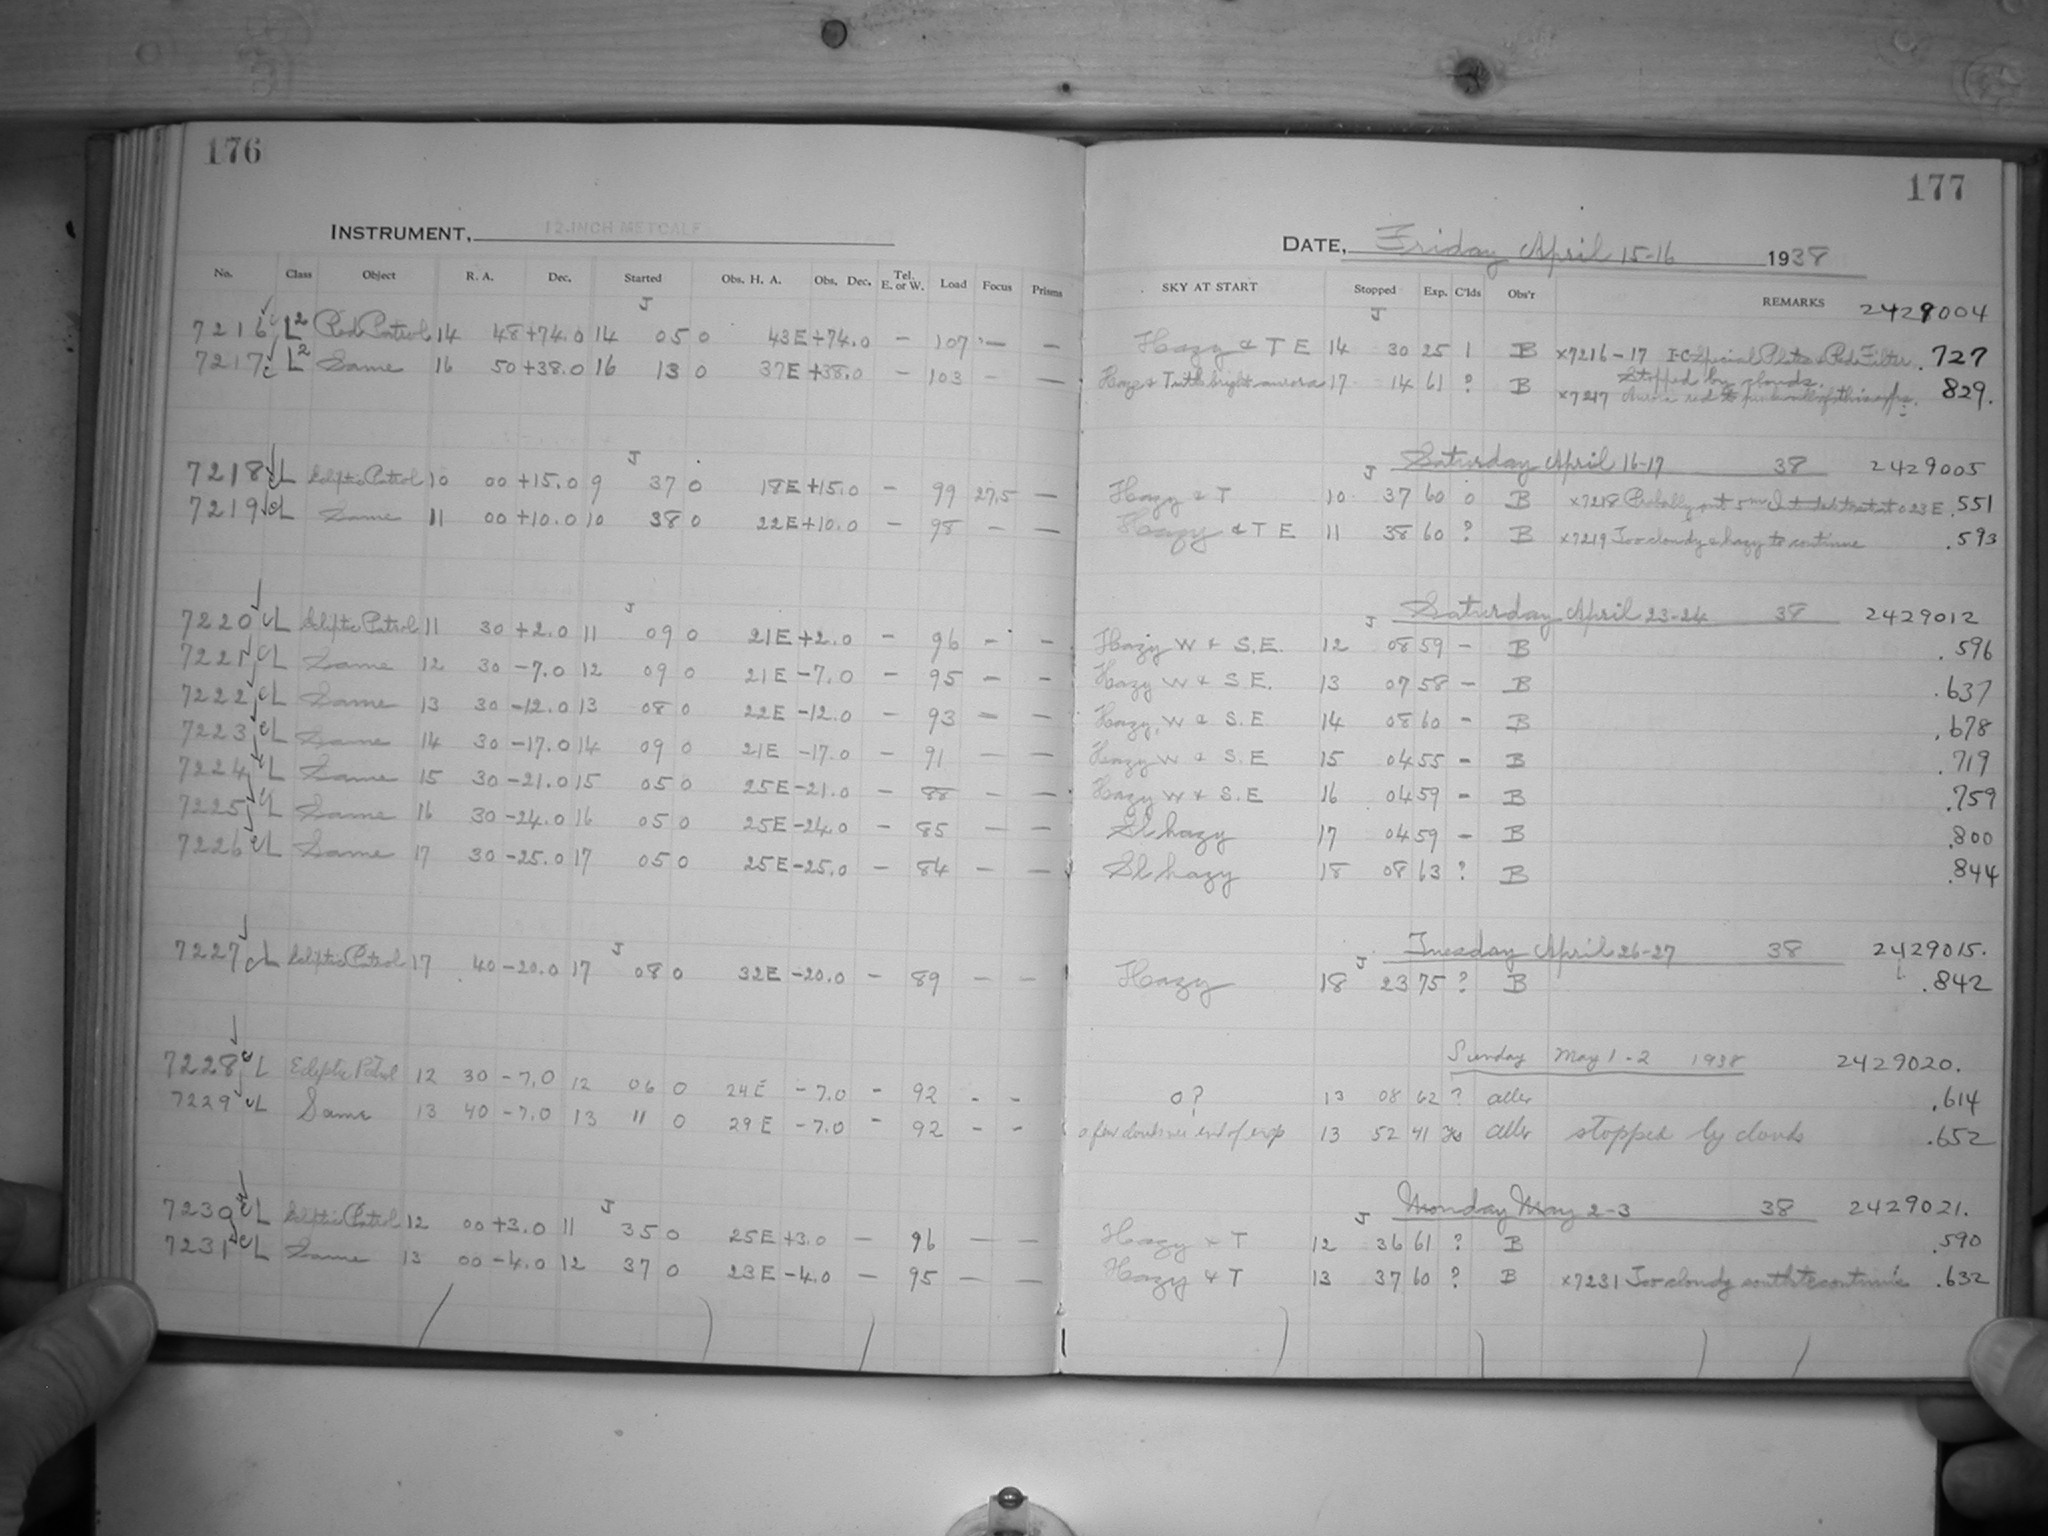 176
INSTRUMENT, 12-INCH METCALF
No. Class Object R. A. Dec. Started Obs. H. A. Obs. Dec. Tel. E. or W. Load Focus Prisms
J
7216 L2 Red Patrol 14 48 +74.0 14 05 0 43E +74.0 — 107 — —
7217 L2 Same 16 50 +38.0 16 13 0 37E +38.0 — 103 — —
J
7218 cL Ecliptic Patrol 10 00 +15.0 9 37 0 18E +15.0 — 99 27.5 —
7219 cL Same 11 00 +10.0 10 38 0 22E +10.0 — 98 — —
J
7220 cL Ecliptic Patrol 11 30 +2.0 11 09 0 21E +2.0 — 96 — —
7221 cL Same 12 30 -7.0 12 09 0 21E -7.0 — 95 — —
7222 cL Same 13 30 -12.0 13 08 0 22E -12.0 — 93 — —
7223 cL Same 14 30 -17.0 14 09 0 21E -17.0 — 91 — —
7224 cL Same 15 30 -21.0 15 05 0 25E -21.0 — 88 — —
7225 cL Same 16 30 -24.0 16 05 0 25E -24.0 — 85 — —
7226 cL Same 17 30 -25.0 17 05 0 25E -25.0 — 84 — —
J
7227 cL Ecliptic Patrol 17 40 -20.0 17 08 0 32E -20.0 — 89 — —
7228 cL Ecliptic Patrol 12 30 -7.0 12 06 0 24E -7.0 - 92 - -
7229 cL Same 13 40 -7.0 13 11 0 29E -7.0 - 92 - -
J
7230 cL Ecliptic Patrol 12 00 +3.0 11 35 0 25E +3.0 — 96 — —
7231 cL Same 13 00 -4.0 12 37 0 23E -4.0 — 95 — —
177
DATE, Friday April 15-16 1938
SKY AT START Stopped Exp. C'lds Obs'r REMARKS 2429004
J
Hazy & T E 14 30 25 1 B x7216-17 I-C Special Plates & Red Filter .727
Stopped by clouds.
Hazy & T with bright aurora 17 14 61 ? B x7217 Aurora red .829.
Saturday April 16-17 38 2429005
J
Hazy & T 10 37 60 0 B x7218 Probably out 5m .551
Hazy & T E 11 38 60 ? B x7219 Too cloudy & hazy to continue .593
Saturday April 23-24 38 2429012
J
Hazy W & S.E. 12 08 59 - B .596
Hazy W & S E. 13 07 58 - B .637
Hazy, W & S. E 14 08 60 - B .678
Hazy W & S. E 15 04 55 - B .719
Hazy W & S. E 16 04 59 - B .759
Sl hazy 17 04 59 - B .800
Sl hazy 18 08 63 ? B .844
Tuesday April 26-27 38 2429015.
J
Hazy 18 23 75 ? B .842
Sunday May 1-2 1938 2429020.
0? 13 08 62 ? aller .614
a few clouds near end of exp 13 52 41 yes aller stopped by clouds .652
Monday May 2-3 38 2429021.
J
Hazy & T 12 36 61 ? B .590
Hazy & T 13 37 60 ? B x7231 Too cloudy south to continue .632